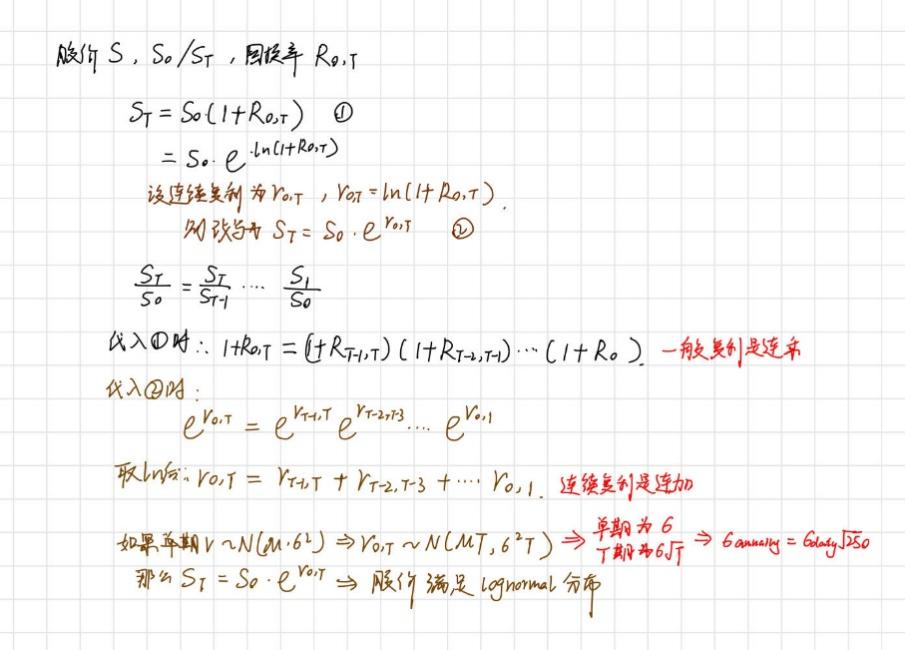 股价 S, S₀/S_T, 回报率 R₀,T
S_T = S₀(1+R₀,T) ①
= S₀·e^{ln(1+R₀,T)}
设连续复利为 r₀,T, r₀,T = ln(1+R₀,T).
则改写为 S_T = S₀·e^{r₀,T} ②
S_T/S₀ = S_T/S_{T-1} ···· S₁/S₀
代入①时: 1+R₀,T = (1+R_{T-1,T})(1+R_{T-2,T-1})···(1+R₀). 一般复利是连乘
代入②时:
e^{r₀,T} = e^{r_{T-1,T}} e^{r_{T-2,T-3}} ···· e^{r₀,₁}
取ln后: r₀,T = r_{T-1,T} + r_{T-2,T-3} + ···· r₀,₁. 连续复利是连加
如果单期 r ~ N(μ·σ²) ⇒ r₀,T ~ N(μT, σ²T) ⇒ 单期为 σ T期为 σ√T ⇒ σ = σdaily√250
那么 S_T = S₀·e^{r₀,T} ⇒ 股价满足 lognormal 分布